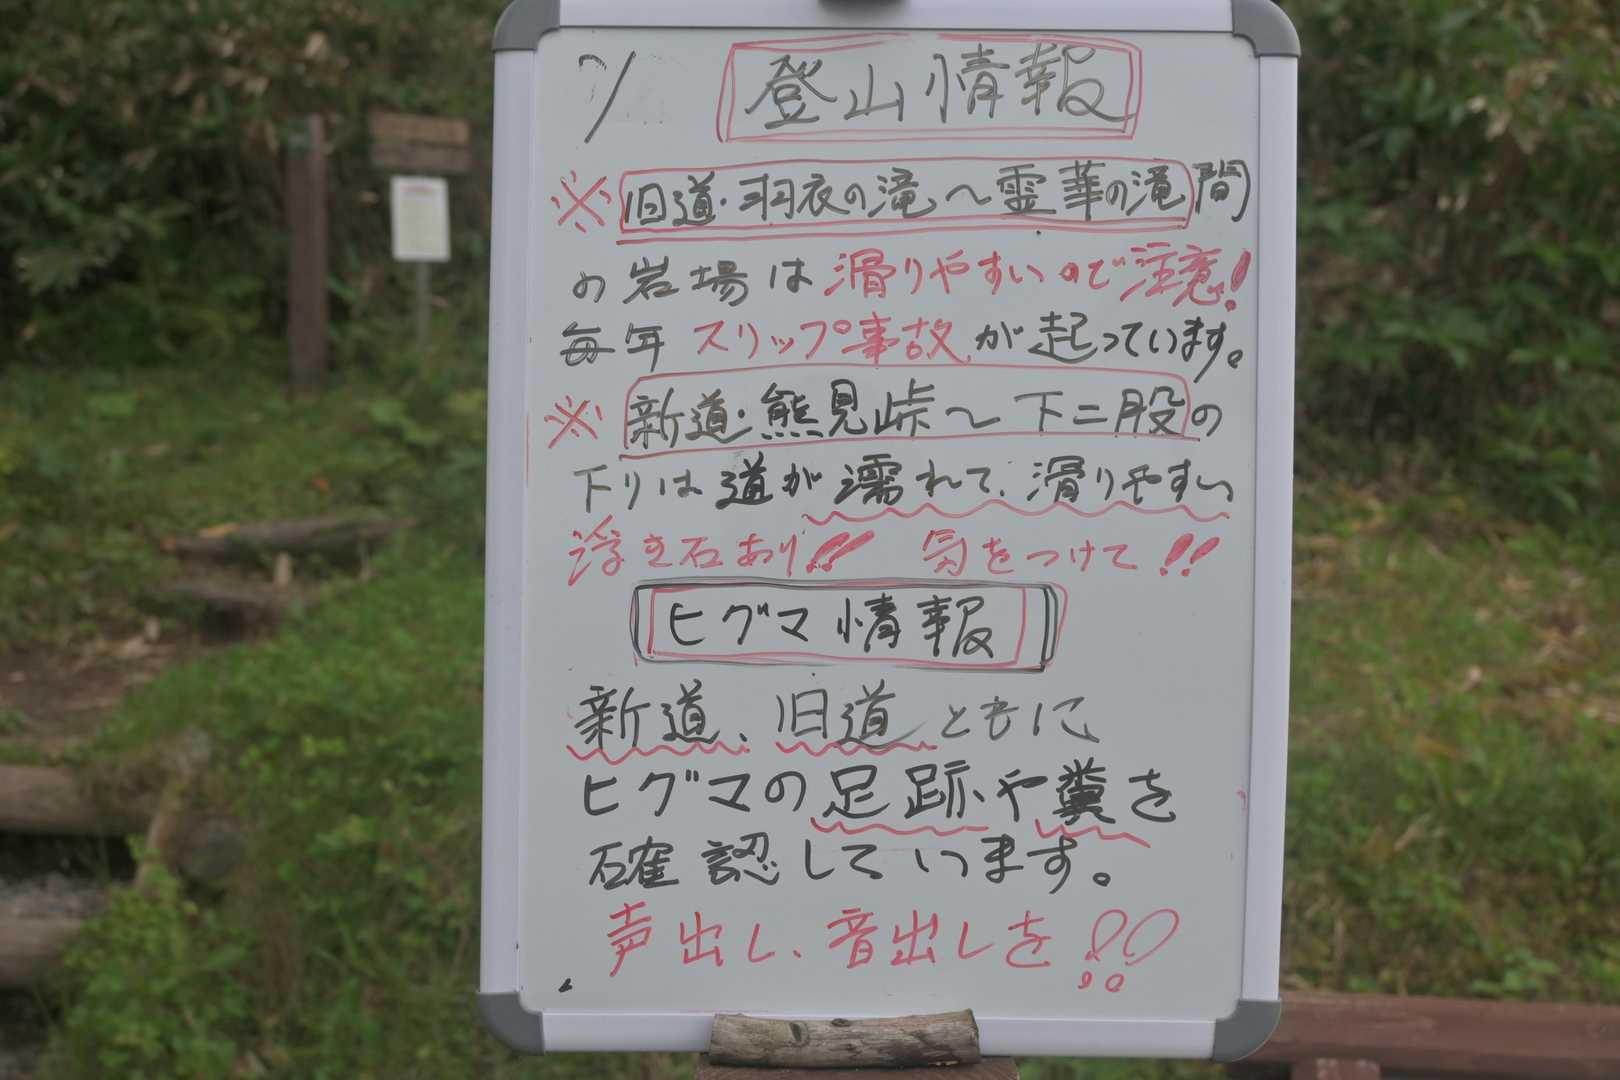 7/ 登山情報
※旧道・羽衣の滝〜霊華の滝間
の岩場は滑りやすいので注意!
毎年スリップ事故が起っています。
※新道・熊見峠〜下二股の
下りは道が濡れて、滑りやすい
浮き石あり!! 気をつけて!!
ヒグマ情報
新道、旧道ともに
ヒグマの足跡や糞を
確認しています。
声出し、音出しを!!